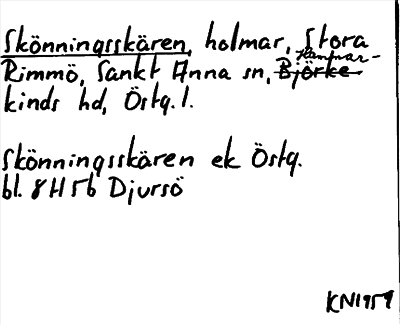 Skönningsskären, holmar, Stora
Rimmö, Sankt Anna sn, Björke- Hammar-
kinds hd, Östg. l.
Skönningsskären ek Östg.
bl. 8H5b Djursö
KN1959